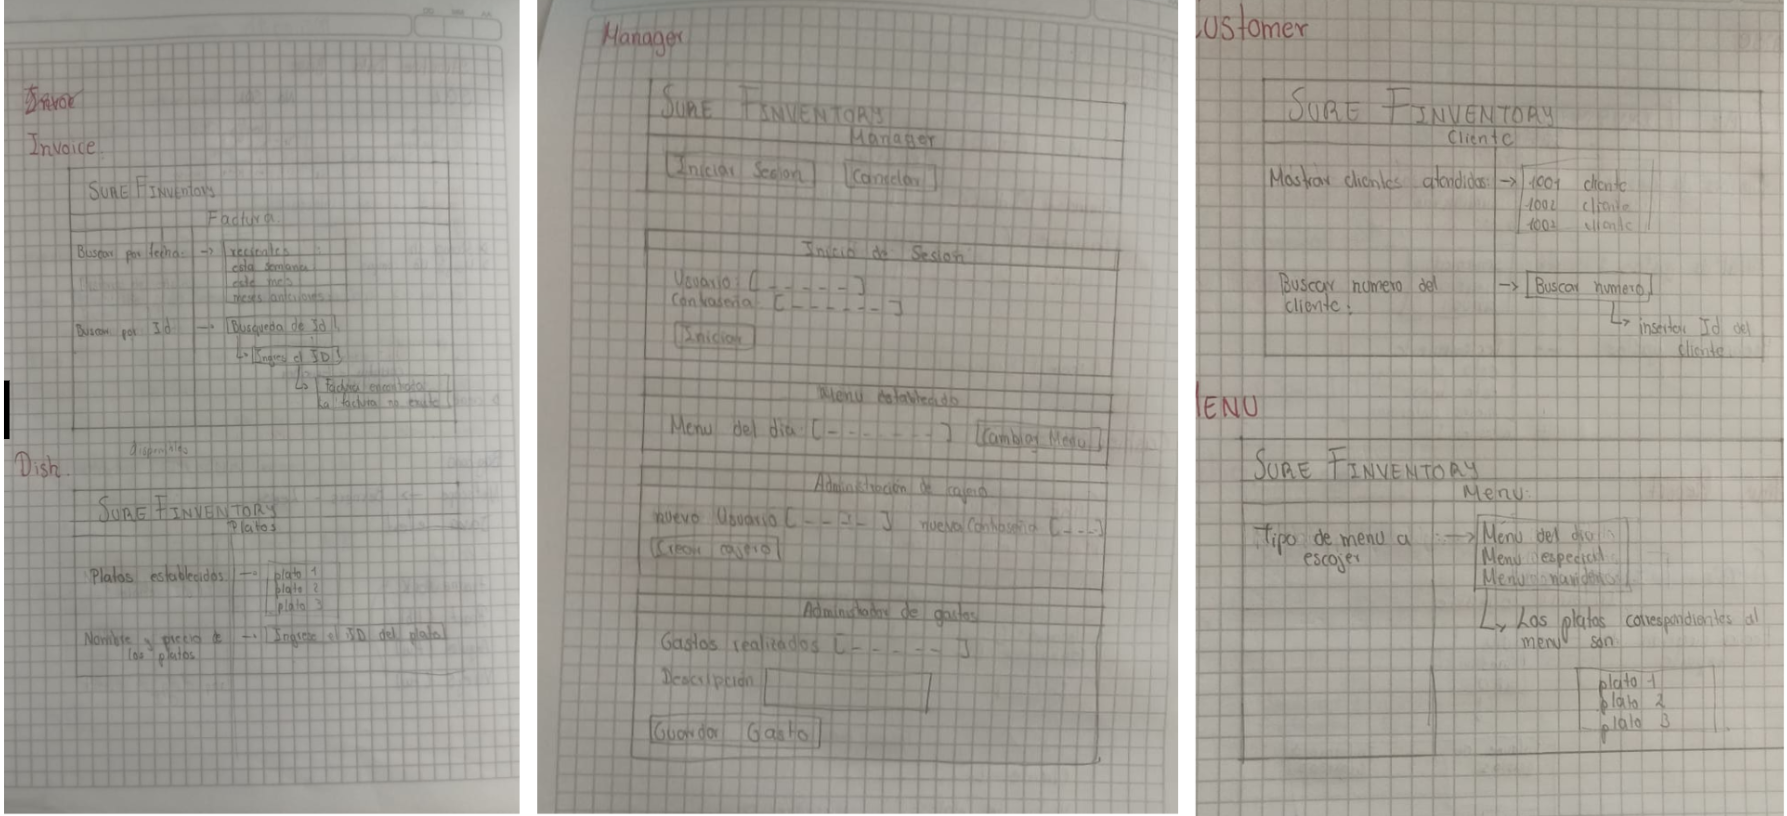 Invoice
SURE FINVENTORY
Factura
Buscar por fecha: → recientes
esta semana
este mes
meses anteriores
Buscar por Id → Busqueda de Id
Ingrese el ID
Factura encontrada
La factura no existe
disponibles
Dish.
SURE FINVENTORY
Platos
Platos establecidos → plato 1
plato 2
plato 3
Nombre y precio de → Ingrese el ID del plato
los platos
Manager
SURE FINVENTORY
Manager
Iniciar Sesion Canselar
Inicio de Sesion
Usuario: [ - - - - - ]
Contraseña: [ - - - - - - ]
Iniciar
Menu establecido
Menu del dia [ - - - - - - - ] Cambiar Menu
Administración de cajero
nuevo Usuario [ - - - - ] nueva Contraseña [ - - - ]
Crear cajero
Administrador de gastos
Gastos realizados [ - - - - - ]
Descripcion
Guardar Gasto
ustomer
SURE FINVENTORY
Cliente
Mostrar clientes atendidos: → 1001 cliente
1002 cliente
1003 cliente
Buscar numero del → Buscar numero
cliente:
↳ insertar Id del
cliente
ENU
SURE FINVENTORY
Menu
Tipo de menu a → Menu del dia
escojer Menu especial
Menu navideño
↳ Los platos correspondientes al
menu son
plato 1
plato 2
plato 3